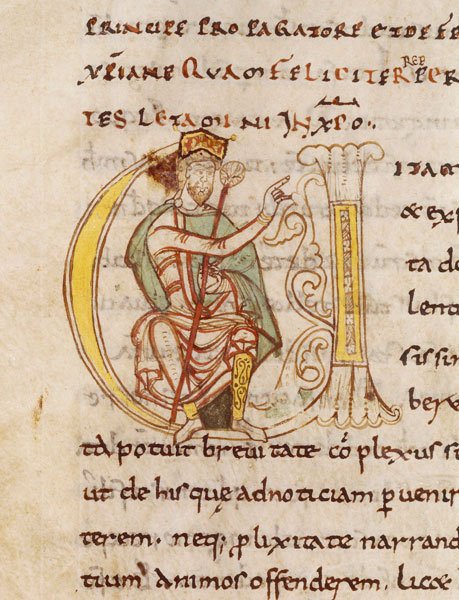 PRINCIPE PROPAGATORE ET DEFE
XP̅IANE QUAM FELICITER REPER
TES LETAMINI IN XP̅O.
ITAM
& EX
ta do
lenti
sissi
bere
ta potuit breuitate cō plexus s
ut de his que ad noticiam ꝑuenir
terem. neq; ꝓlixitate narrand
tium animos offenderem.